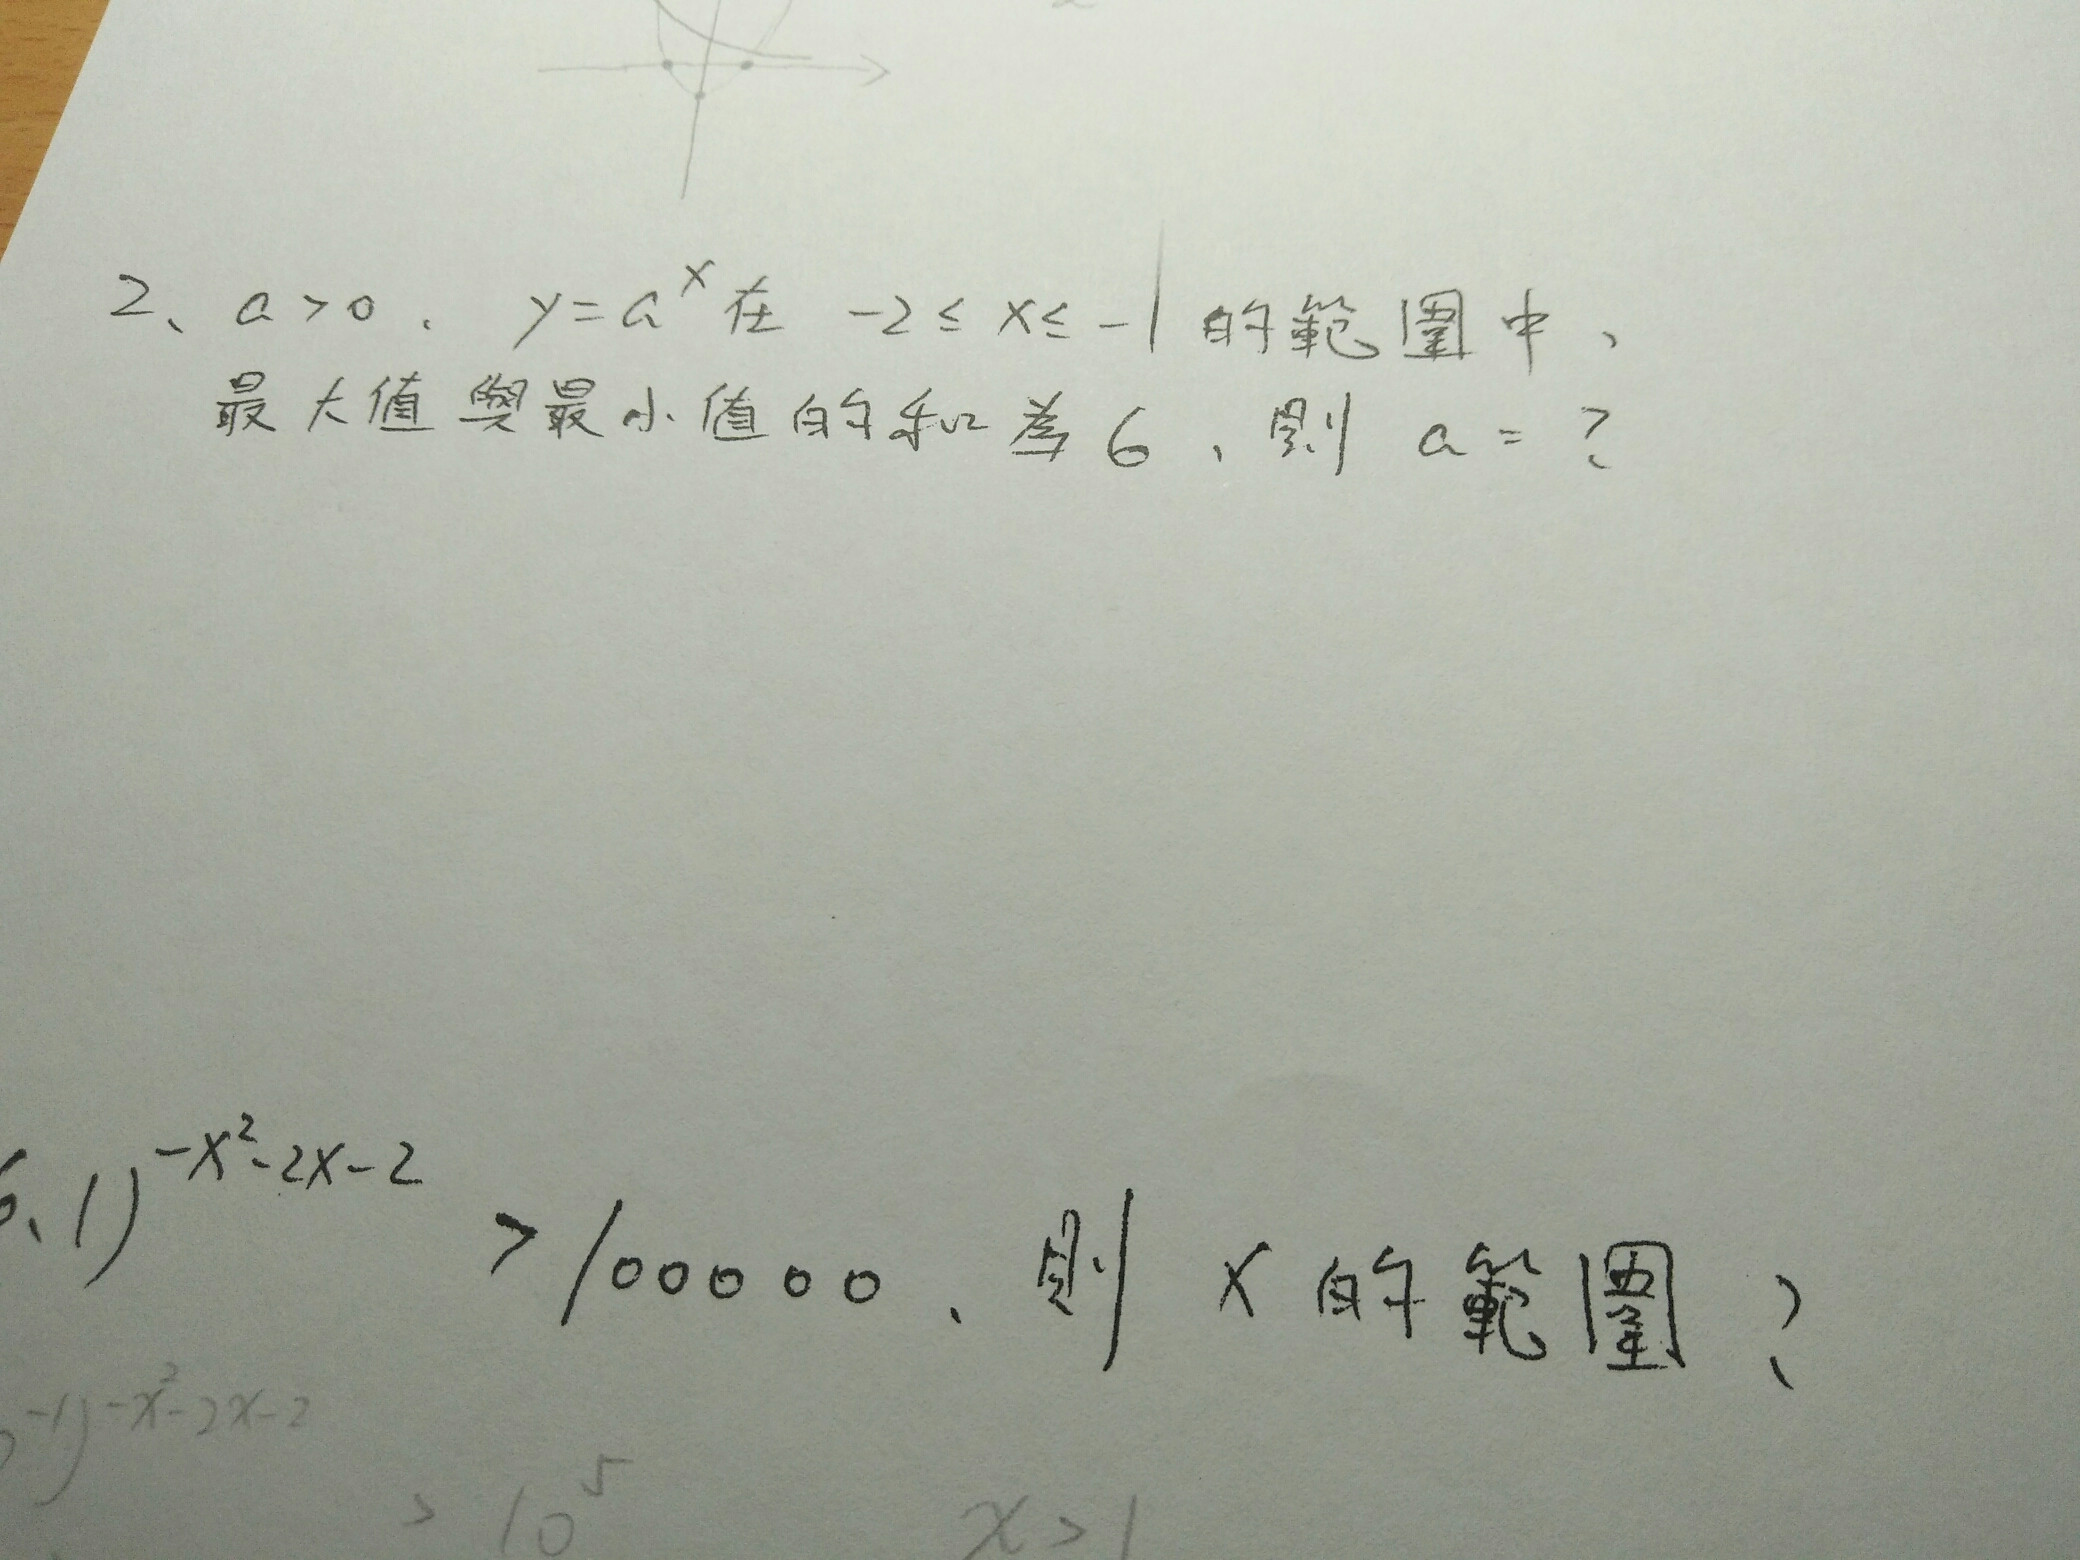 2、a>0、y=a^x在 -2≤x≤-1的範圍中、
最大值與最小值的和為6、則 a=?
.1)^-x²-2x-2 >100000、則 x的範圍?
-1)^-x²-2x-2
> 10^5 x>1